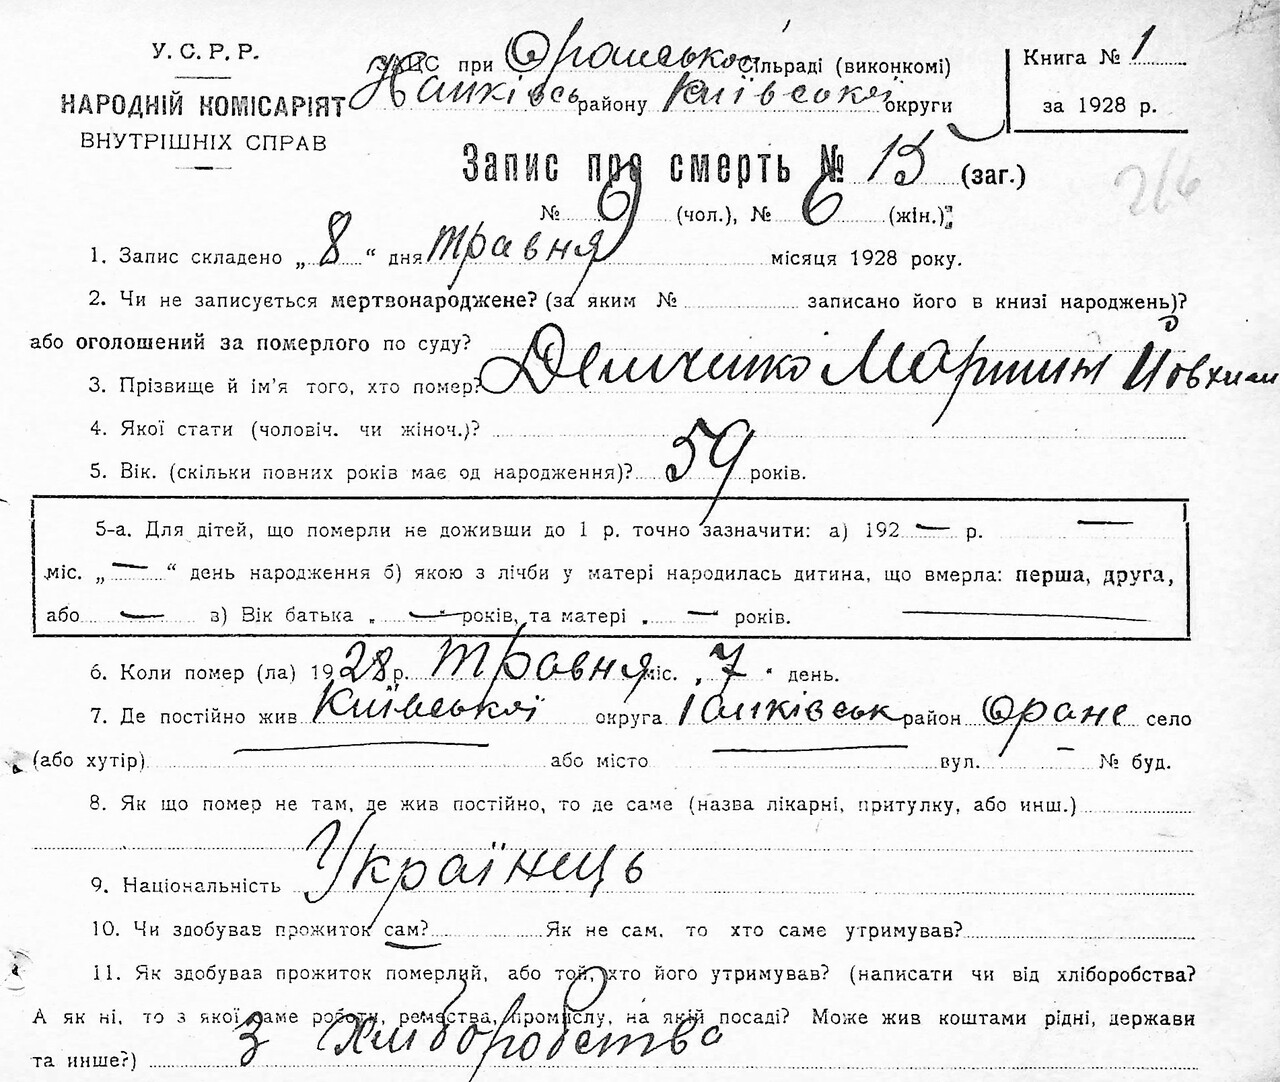 У. С. Р. Р.
НАРОДНІЙ КОМІСАРІЯТ
ВНУТРІШНІХ СПРАВ
ЗАГС при Оранській сільраді (виконкомі)
району Київської округи
Книга № 1
за 1928 р.
Запис про смерть № 15 (заг.)
№ 9 (чол.), № 6 (жін.)
216
1. Запис складено „ 8 “ дня травня місяця 1928 року.
2. Чи не записується мертвонароджене? (за яким № записано його в книзі народжень)?
або оголошений за померлого по суду?
3. Прізвище й ім’я того, хто помер? Демченко
4. Якої стати (чоловіч. чи жіноч.)?
5. Вік. (скільки повних років має од народження)? 59 років.
5-а. Для дітей, що померли не доживши до 1 р. точно зазначити: а) 192 — р. —
міс. „ — “ день народження б) якою з лічби у матері народилась дитина, що вмерла: перша, друга,
або — в) Вік батька „ — “ років, та матері „ — “ років.
6. Коли помер (ла) 1928 р. травня міс. „ 7 “ день.
7. Де постійно жив Київської округа район Оране село
(або хутір) — або місто — вул. — № буд.
8. Як що помер не там, де жив постійно, то де саме (назва лікарні, притулку, або инш.)
9. Національність Українець
10. Чи здобував прожиток сам? Як не сам, то хто саме утримував?
11. Як здобував прожиток померлий, або той, хто його утримував? (написати чи від хліборобства?
А як ні, то з якої саме роботи, ремества, промислу, на якій посаді? Може жив коштами рідні, держави
та инше?) З хліборобства